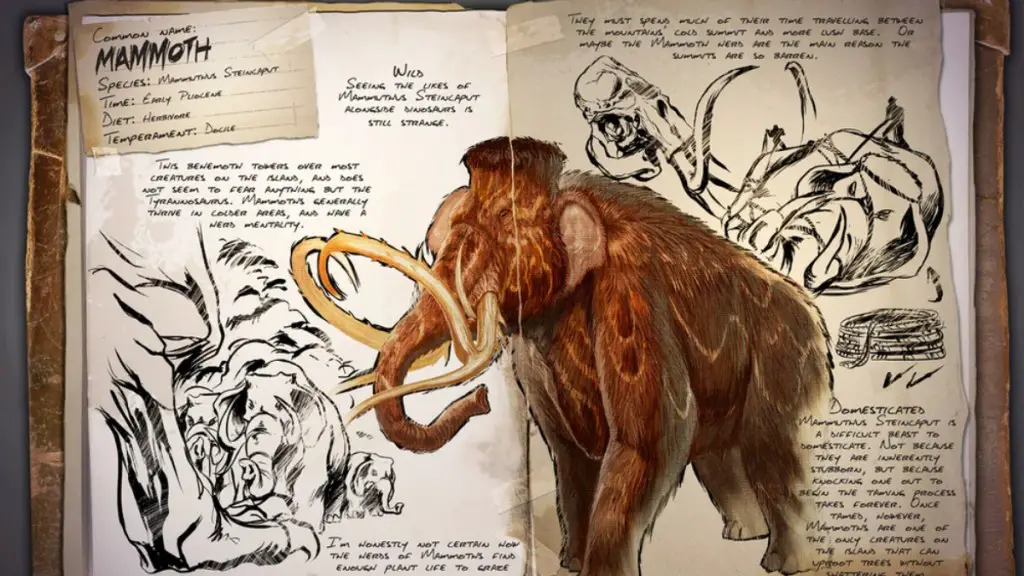 Common name:
MAMMOTH
Species: Mammuthus Steincaput
Time: Early Pliocene
Diet: Herbivore
Temperament: Docile
Wild
Seeing the likes of
Mammuthus Steincaput
alongside dinosaurs is
still strange.
This behemoth towers over most
creatures on the island, and does
not seem to fear anything but the
Tyrannosaurus. Mammoths generally
thrive in colder areas, and have a
herd mentality.
I'm honestly not certain how
the herds of Mammoths find
enough plant life to graze
They must spend much of their time travelling between
the mountains' cold summit and more lush base. Or
maybe the Mammoth herd are the main reason the
summits are so barren.
Domesticated
Mammuthus Steincaput is
a difficult beast to
domesticate. Not because
they are inherently
stubborn, but because
knocking one out to
begin the taming process
takes forever. Once
tamed, however,
Mammoths are one of
the only creatures on
the island that can
uproot trees without
shattering them